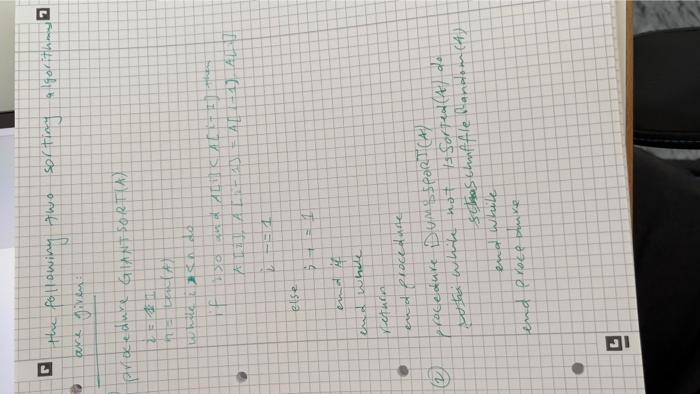 the following two sorting algorithms
are given:
procedure GIANTSORT(A)
i = 1
n = len(A)
while i < n do
if i>0 and A[i] < A[i-1] then
A[i], A[i-1] = A[i-1], A[i]
i -= 1
else
i += 1
end if
end while
return
end procedure
(2) procedure DUMBSPORT(A)
while not isSorted(A) do
schuffleRandom(A)
end while
end procedure